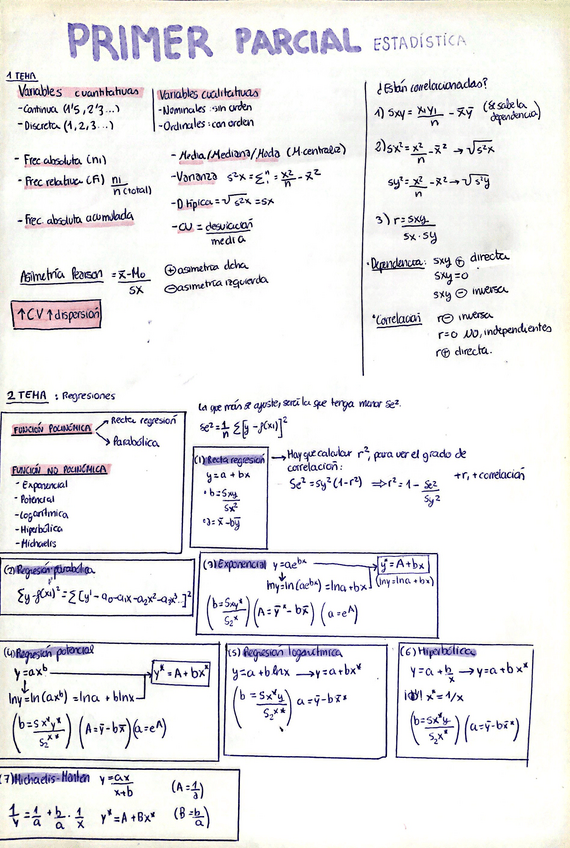 PRIMER PARCIAL ESTADÍSTICA
1 TEMA
Variables cuantitativas
- Continua (1'5, 2'3...)
- Discreta (1, 2, 3...)
Variables cualitativas
- Nominales: sin orden
- Ordinales: con orden
- Frec absoluta (ni)
- Frec relativa (fi) ni/n (total)
- Frec. absoluta acumulada
- Media/Mediana/Moda (M.centraliz)
- Varianza s²x = Σⁿᵢ = x²/n - x̄²
- D típica = √s²x = sx
- CV = desviación/media
Asimetría Pearson = x̄-Mo/sx
⊕ asimetría dcha
⊖ asimetría izquierda
↑CV ↑dispersión
¿Están correlacionadas?
1) sxy = xiyi/n - x̄ȳ (Se sabe la dependencia)
2) sx² = x²/n - x̄² → √s²x
sy² = x²/n - x̄² → √s²y
3) r = sxy/sx·sy
· Dependencia: sxy ⊕ directa
sxy = 0
sxy ⊖ inversa
· Correlación r⊖ inversa
r=0 No, independientes
r⊕ directa.
2 TEMA : Regresiones
FUNCIÓN POLINÓMICA
Recta regresión
Parabólica
FUNCIÓN NO POLINÓMICA
- Exponencial
- Potencial
- Logarítmica
- Hiperbólica
- Michaelis
La que más se ajuste, será la que tenga menor Se².
Se² = 1/n Σ[y - f(xi)]²
(1) Recta regresión
y = a + bx
· b = sxy/sx²
· a = x̄ - bȳ
→ Hay que calcular r², para ver el grado de
correlación:
Se² = sy² (1-r²) ⇒ r² = 1 - Se²/sy²
+r, + correlación
(2) Regresión parabólica
Σ(y-f(xi))² = Σ[y' - a₀ - a₁x - a₂x² - a₃x³..]²
(3) Exponencial y = ae^bx → y* = A + bx
lny = ln(ae^bx) = lna + bx
(lny = lna + bx)
(b = sxy*/s₂x) (A = ȳ* - bx̄) (a = e^A)
(4) Regresión potencial
y = ax^b → y* = A + bx*
lny = ln(ax^b) = lna + blnx
(b = sx*y*/s₂x*) (A = ȳ - bx̄) (a = e^A)
(5) Regresión logarítmica
y = a + b lnx → y = a + bx*
(b = sx*y/s₂x*) a = ȳ - bx̄*
(6) Hiperbólica
y = a + b/x → y = a + bx*
x* = 1/x
(b = sx*y/s₂x*) (a = ȳ - bx̄*)
(7) Michaelis-Menten y = ax/x+b (A = 1/a)
1/y = 1/a + b/a · 1/x y* = A + Bx* (B = b/a)